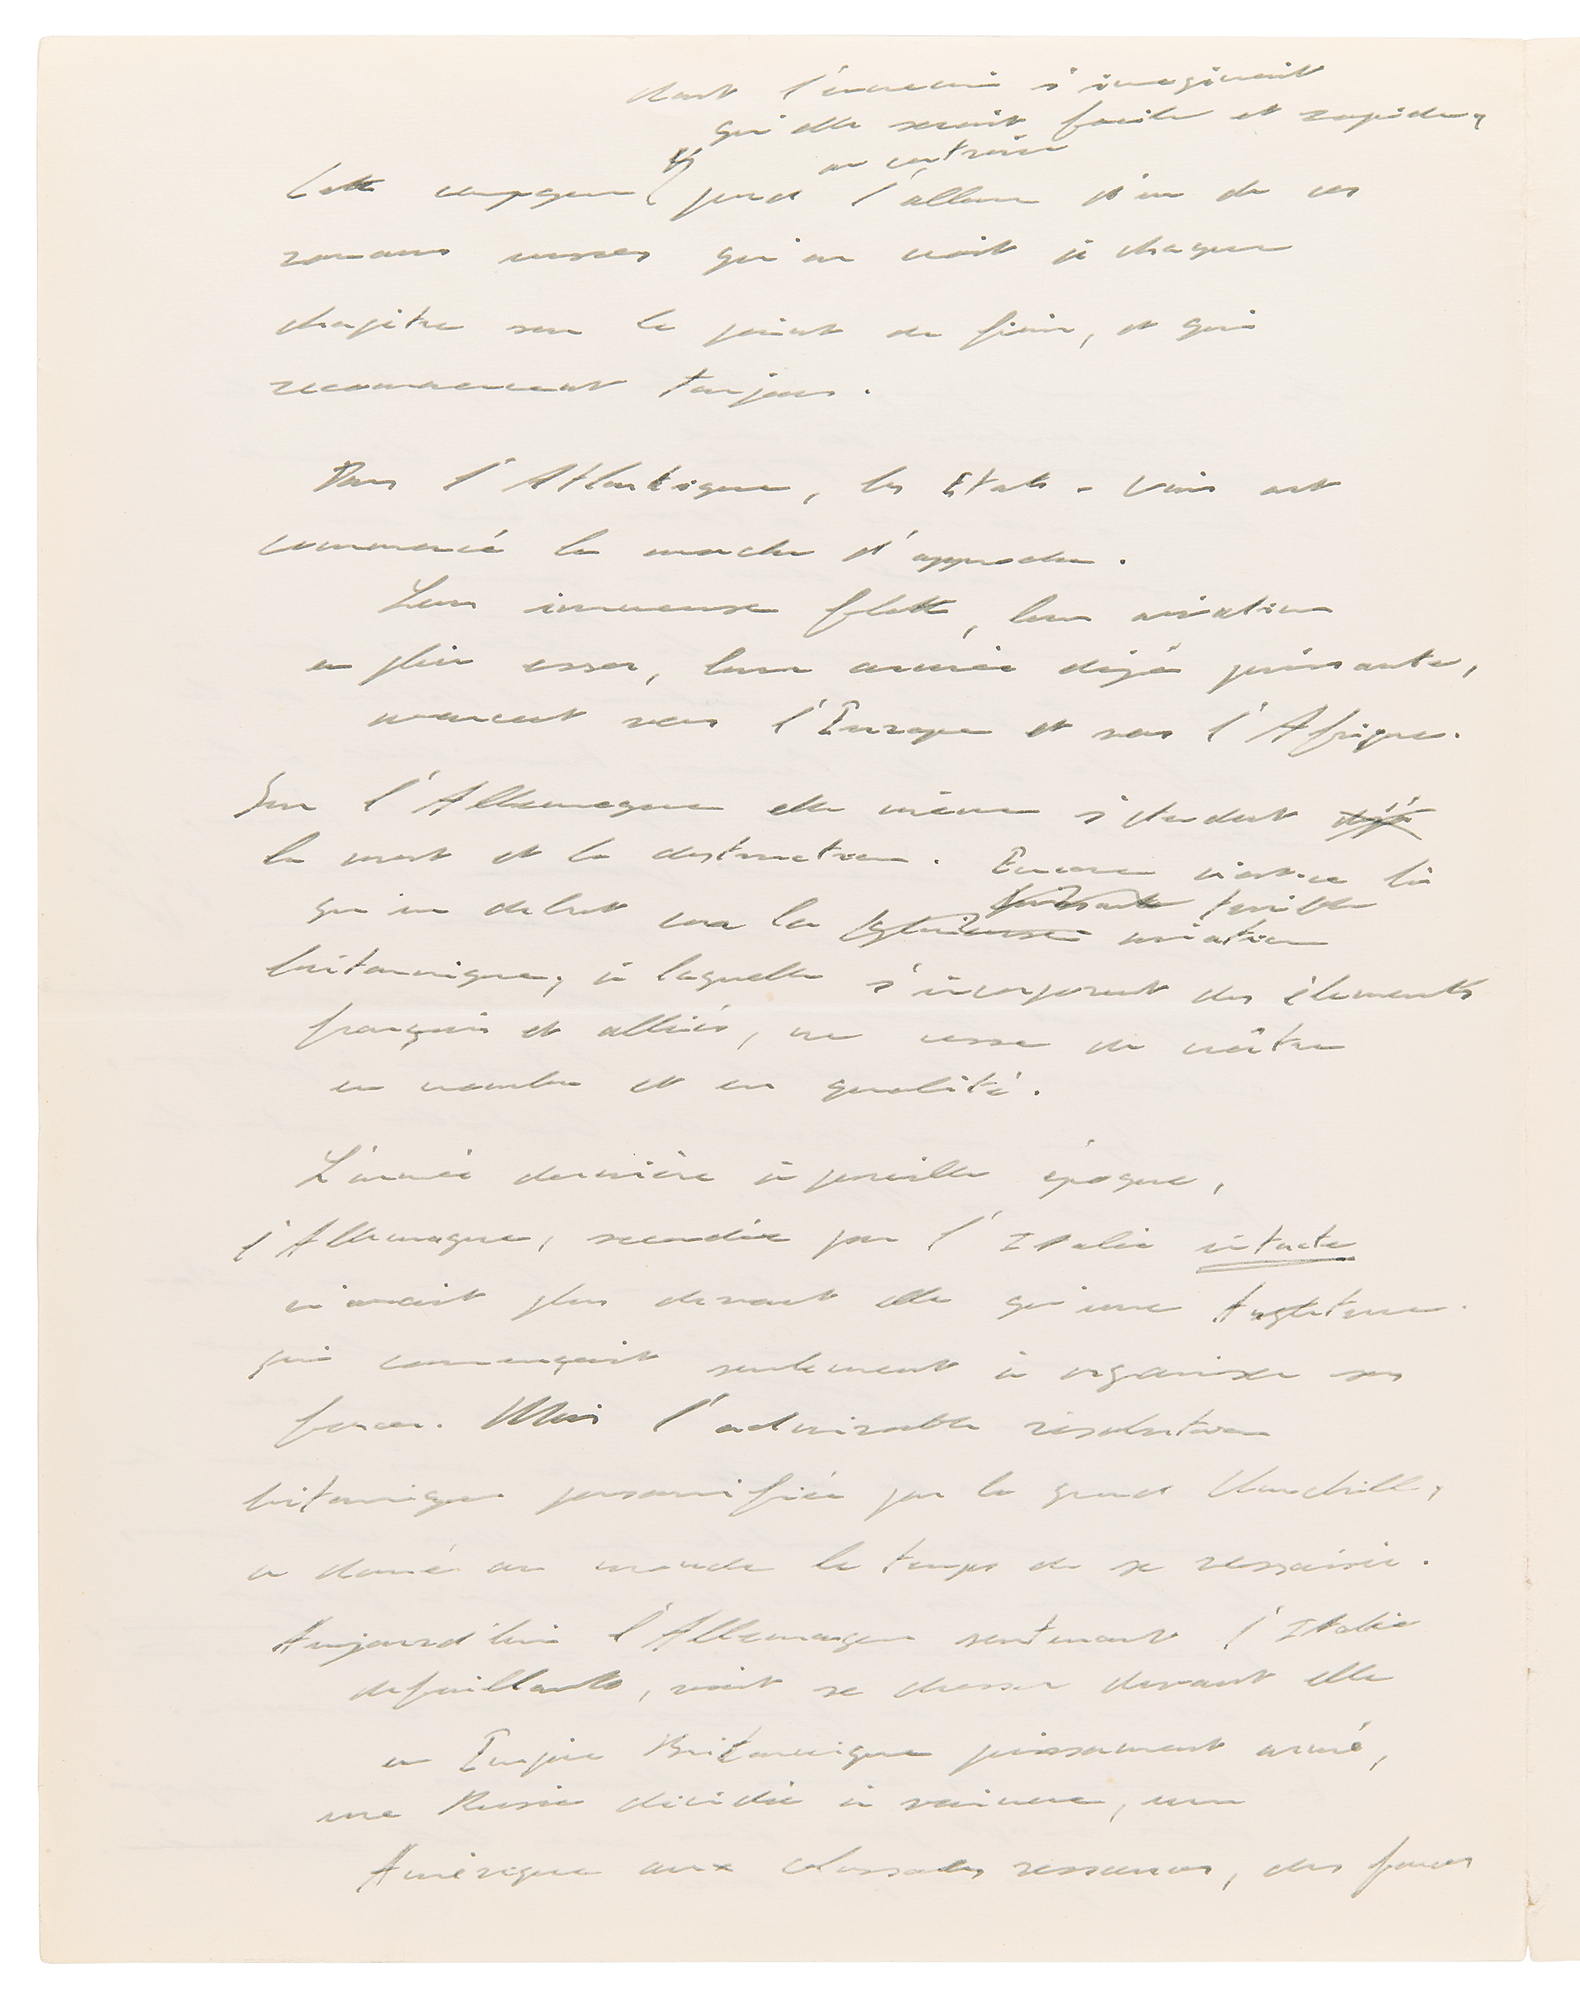 dont l'ennemi s'imaginait
qu'elle serait facile et rapide,
au contraire
Cette campagne prend l'allure d'un de ces
romans russes qu'on voit à chaque
chapitre sur le point de finir, et qui
recommencent toujours.
Dans l'Atlantique, les Etats-Unis ont
commencé la marche d'approche.
Leur immense flotte, leur aviation
en plein essor, leur armée déjà puissante,
avancent vers l'Europe et vers l'Afrique.
Sur l'Allemagne elle même s'étendent déjà
la mort et la destruction. Encore n'est-ce là
qu'un début car la
puissante terrible
glorieuse aviation
britannique, à laquelle s'incorporent des éléments
français et alliés, ne cesse de croître
en nombre et en qualité.
L'année dernière à pareille époque,
l'Allemagne, secondée par l'Italie intacte
n'avait plus devant elle qu'une Angleterre
qui commençait seulement à organiser ses
forces. Mais l'admirable résolution
britannique personnifiée par le grand Churchill,
a donné au monde le temps de se ressaisir.
Aujourd'hui l'Allemagne soutenant l'Italie
défaillante, voit se dresser devant elle
un Empire Britannique puissamment armé,
une Russie décidée à vaincre, une
Amérique aux colossales ressources, des forces